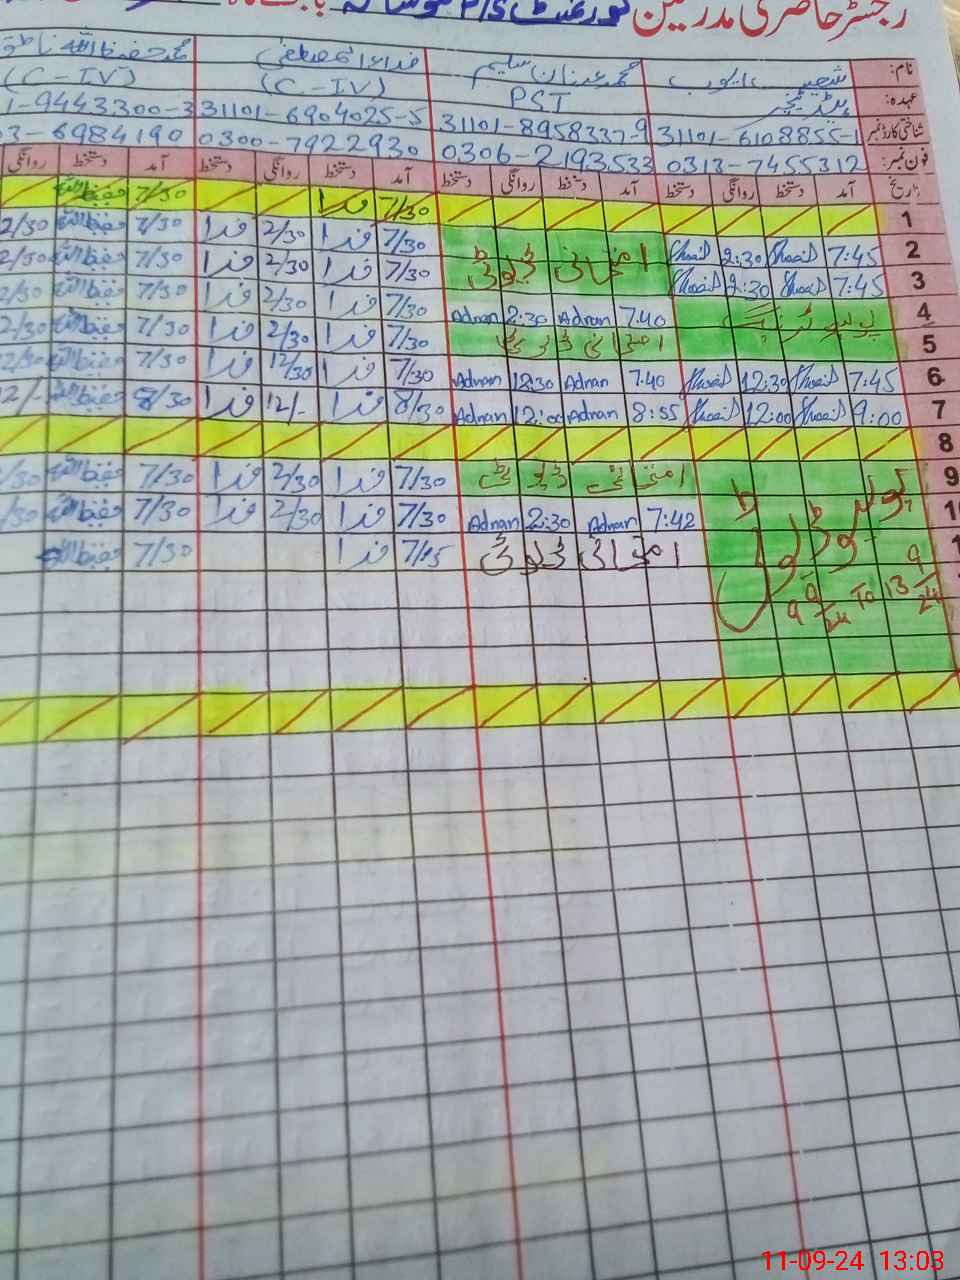 رجسٹر حاضری مدرسین گورنمنٹ P/S
نام: شعیب ایوب محمد عدنان سلیم فداء المصطفیٰ محمد حفیظ اللہ
عہدہ: ہیڈ ٹیچر PST (C-IV) (C-IV)
شناختی کارڈ نمبر 31101-6108855-1 31101-8958337-9 31101-6904025-5 1-9443300-3
فون نمبر: 0313-7455312 0306-2193533 0300-7922930 03-6984190
تاریخ آمد دستخط روانگی دستخط آمد دستخط روانگی دستخط آمد دستخط روانگی دستخط آمد دستخط روانگی
1 7/30 فدا 7/30 حفیظ اللہ
2 7:45 Shoaib 2:30 Shoaib امتحانی ڈیوٹی 7/30 فدا 2/30 فدا 7/30 حفیظ اللہ 2/30
3 7:45 Shoaib 2:30 Shoaib 7/30 فدا 2/30 فدا 7/30 حفیظ اللہ 2/30
4 7:40 Adnan 2:30 Adnan 7/30 فدا 2/30 فدا 7/30 حفیظ اللہ 2/30
5 امتحانی ڈیوٹی 7/30 فدا 2/30 فدا 7/30 حفیظ اللہ 2/30
6 7:45 Shoaib 12:30 Shoaib 7:40 Adnan 12:30 Adnan 7/30 فدا 12/30 فدا 7/30 حفیظ اللہ 12/30
7 9:00 Shoaib 12:00 Shoaib 8:55 Adnan 12:00 Adnan 8/30 فدا 12/- فدا 8/30 حفیظ اللہ 12/-
8
9 پولیو ڈیوٹی امتحانی ڈیوٹی 7/30 فدا 2/30 فدا 7/30 حفیظ اللہ /30
10 7:42 Adnan 2:30 Adnan 7/30 فدا 2/30 فدا 7/30 حفیظ اللہ /30
9 9/24 To 13 9/24 امتحانی ڈیوٹی 7/15 فدا 7/30 حفیظ اللہ
11-09-24 13:03